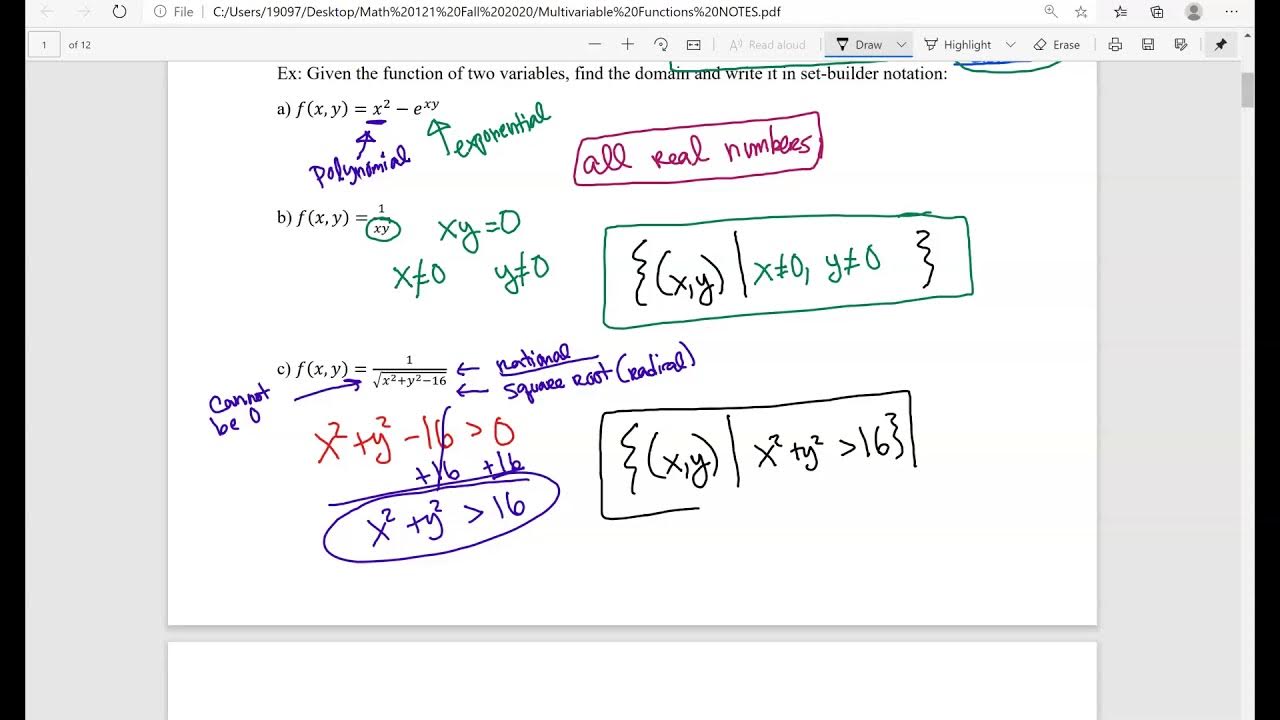 File | C:/Users/19097/Desktop/Math%20121%20Fall%202020/Multivariable%20Functions%20NOTES.pdf
1 of 12 Read aloud Draw Highlight Erase
Ex: Given the function of two variables, find the domain and write it in set-builder notation:
a) f(x, y) = x² − e^{xy}
exponential
polynomial
all real numbers
b) f(x, y) = 1/xy
xy = 0
x≠0 y≠0
{(x,y) | x≠0, y≠0 }
c) f(x, y) = 1/√(x²+y²−16)
← rational
← square root (radical)
cannot
be 0
x² + y² − 16 > 0
+16 +16
x² + y² > 16
{(x,y) | x² + y² > 16}